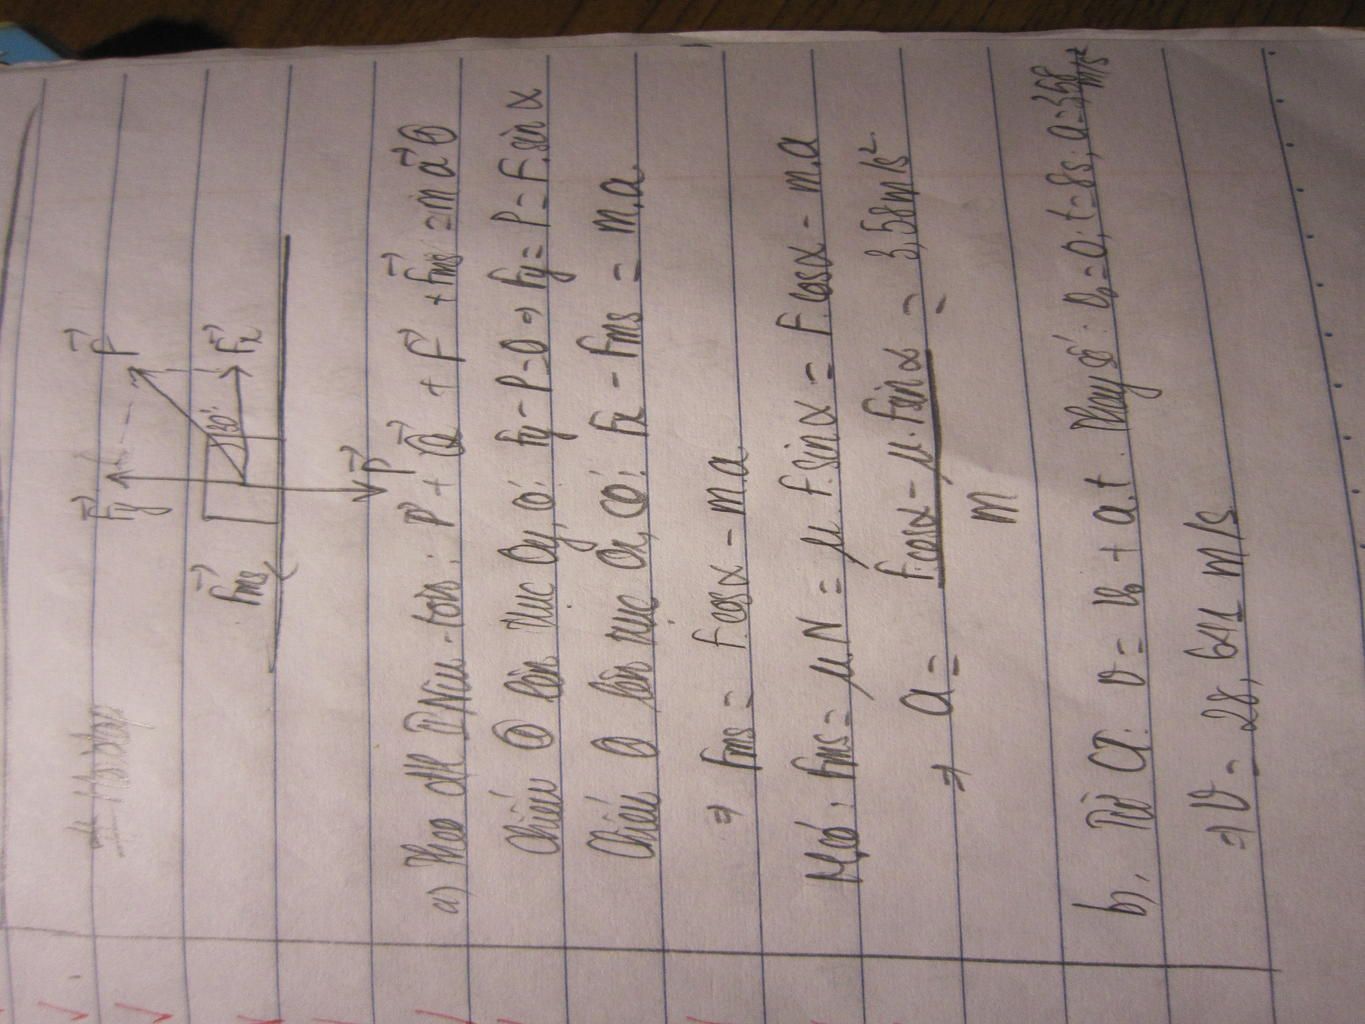 F⃗y F⃗
30°
F⃗ms F⃗x
P⃗
a) Theo ĐL II Niu-tơn: P⃗ + Q⃗ + F⃗ + F⃗ms = m a⃗ ①
Chiếu ① lên trục Oy, có: Fy - P = 0 => Fy = P = F.sin α
Chiếu ① lên trục Ox, có: Fx - Fms = m.a
=> Fms = F.cosα - m.a
M,có: Fms = μ.N = μ.F.sinα = F.cosα - m.a
=> a = F.cosα - μ.F.sinα / m = 3,58 m/s².
b, Từ CT: v = v₀ + a.t. Thay số: v₀ = 0, t = 8s, a = 3,58 m/s²
=> v = 28,64 m/s